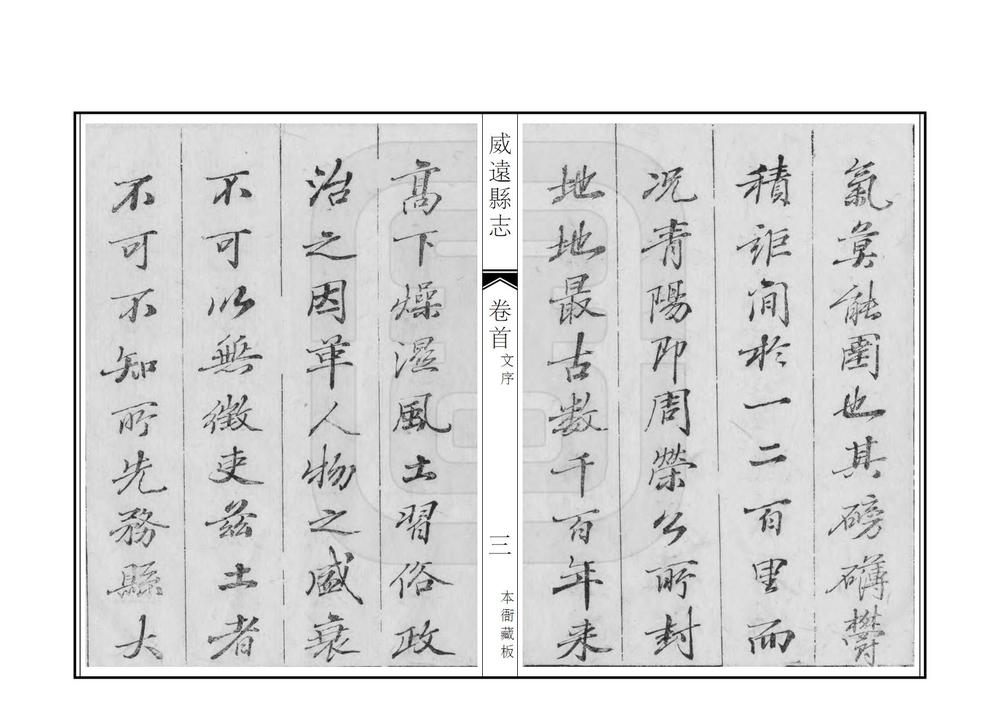 氣莫能圍也其磅礴欝
積詎间扵一二百里而
况青陽即周榮公所封
地地最古数千百年来
威遠縣志
卷首
文序
三
本衙藏板
髙下燥濕風土習俗政
治之因革人物之盛衰
不可以無徴吏兹土者
不可不知所先務縣大